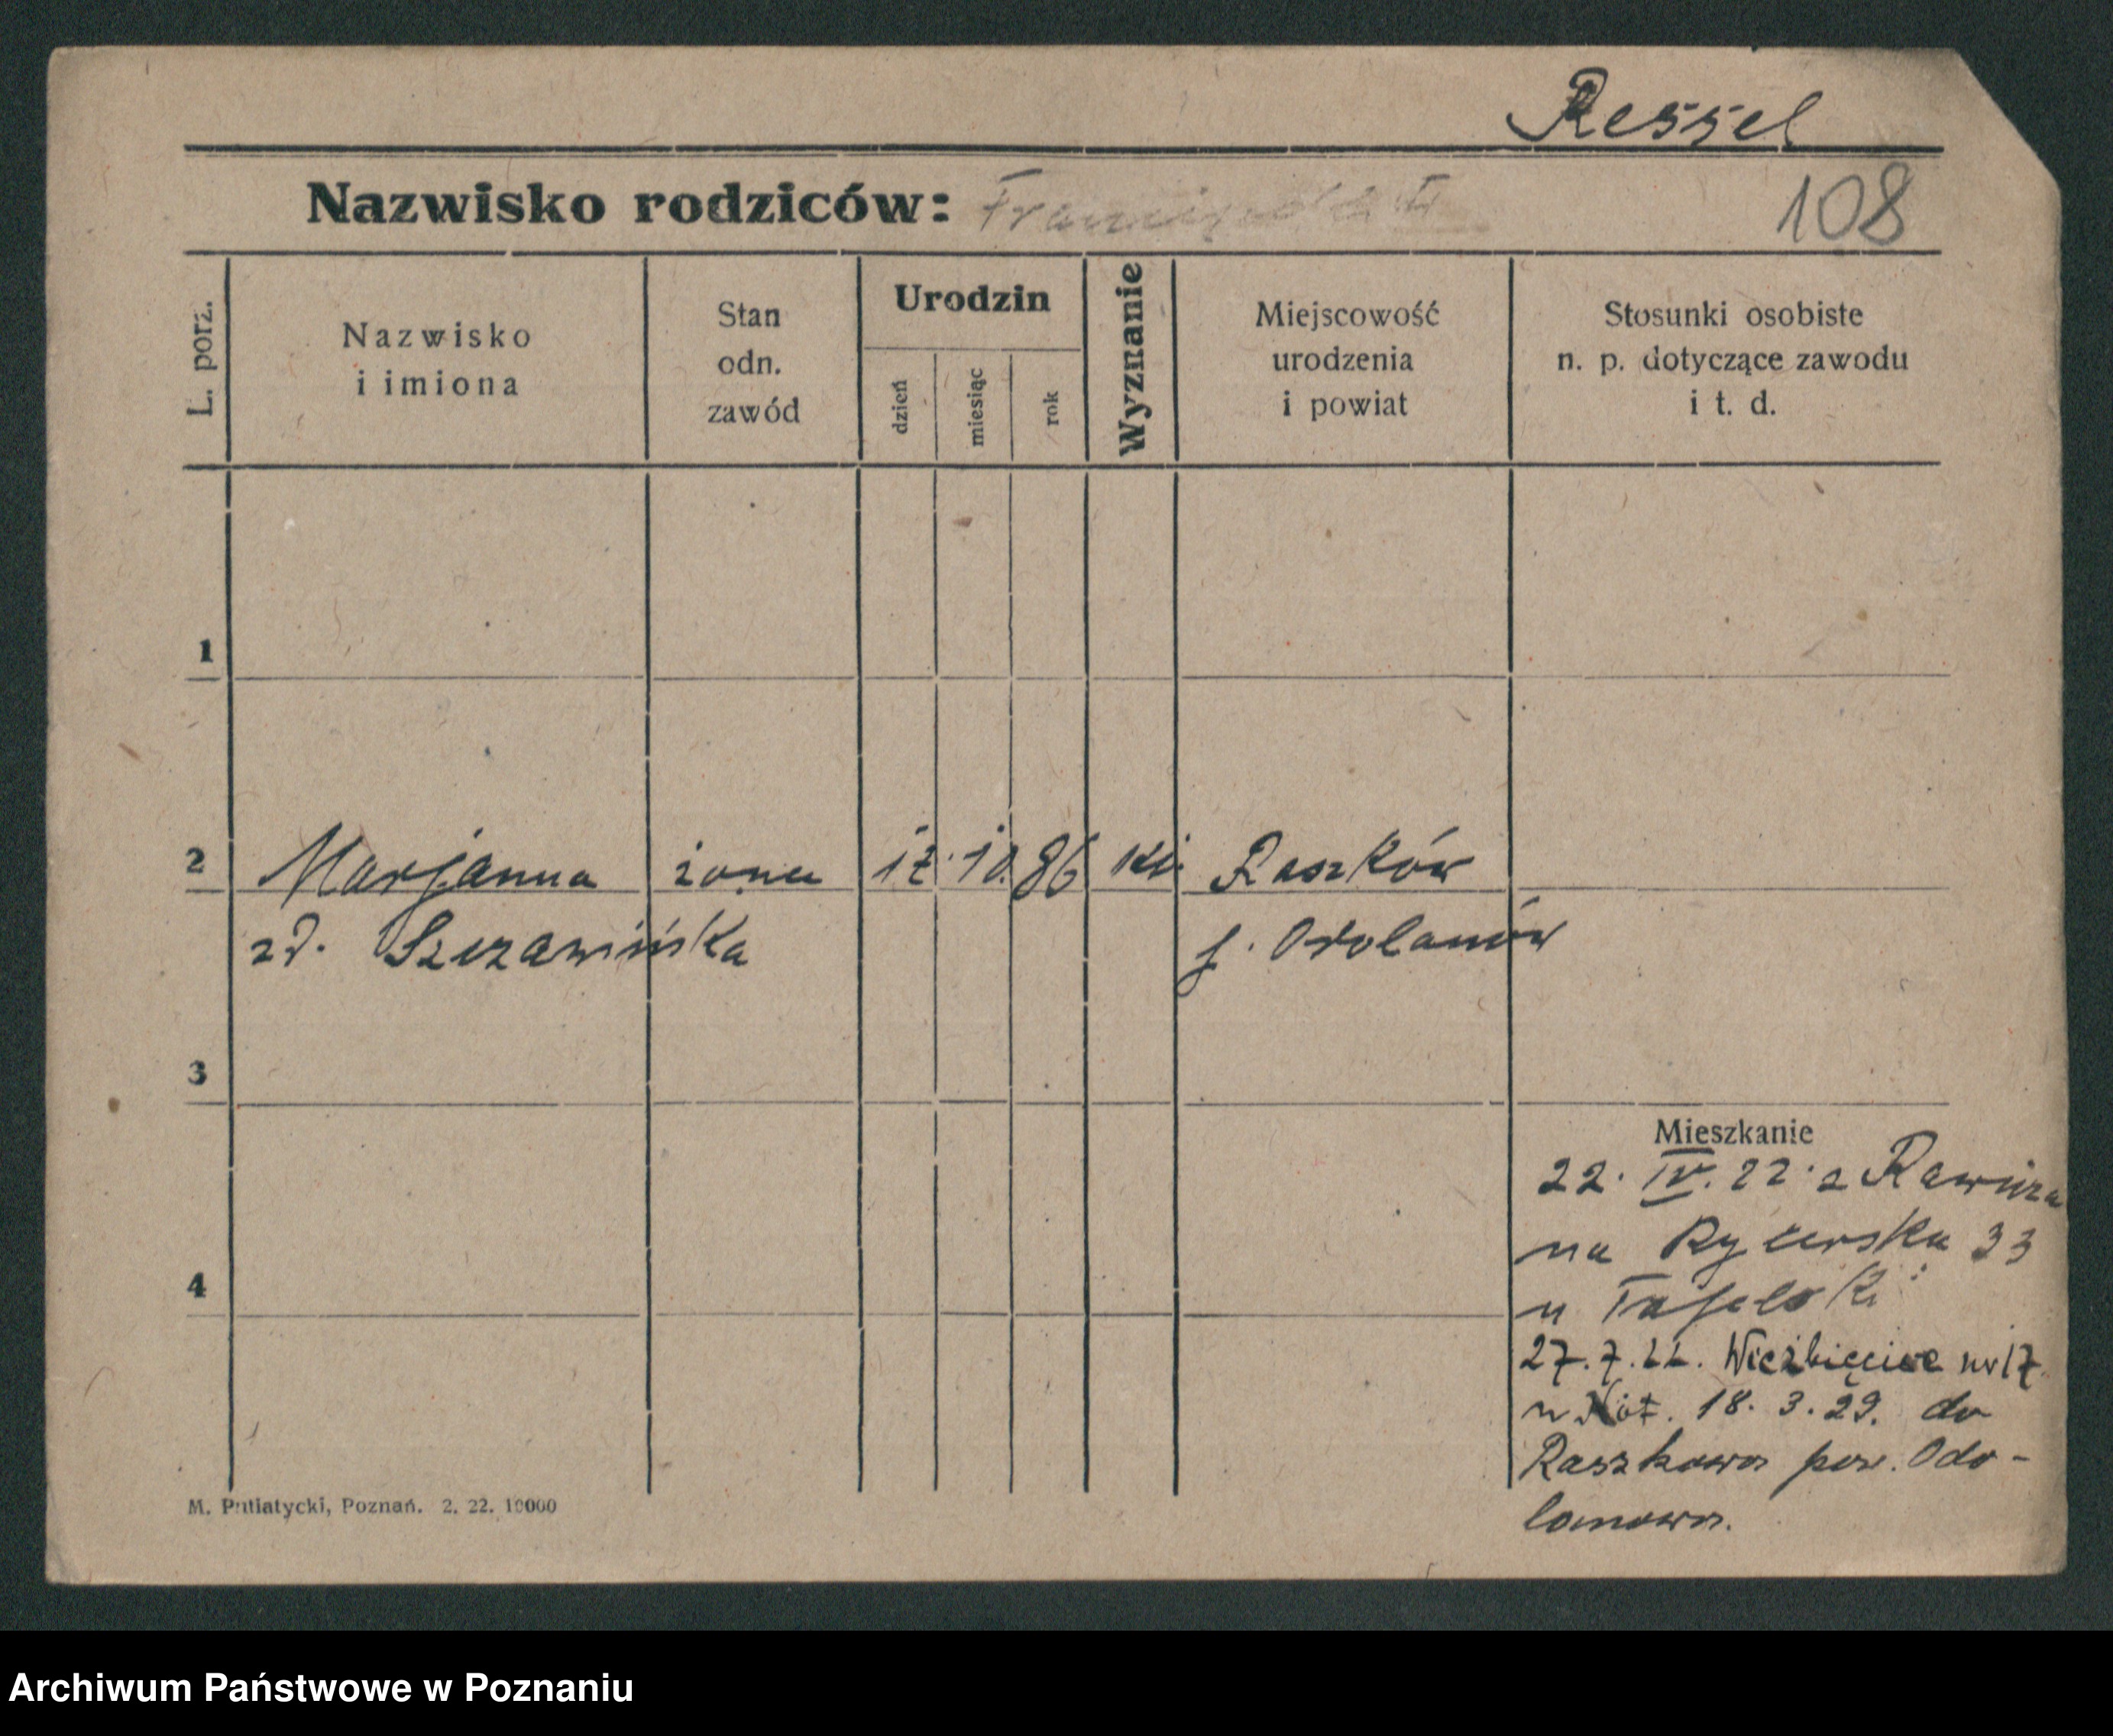 Ressel
Nazwisko rodziców:
108
L. porz.
Nazwisko
i imiona
Stan
odn.
zawód
Urodzin
dzień
miesiąc
rok
Wyznanie
Miejscowość
urodzenia
i powiat
Stosunki osobiste
n. p. dotyczące zawodu
i t. d.
1
2 Marjanna żona 17. 10. 86 Raszków
zd. Szczawińska Odolanów
3
Mieszkanie
22. IV. 22. z Rawicza
na Rycerska 33
u
4
27. 7. 22. Wieżbięcice nr 17
18. 3. 29. do
Raszkowa pow. Odo-
lanowa.
M. Putiatycki, Poznań. 2. 22. 10000
Archiwum Państwowe w Poznaniu